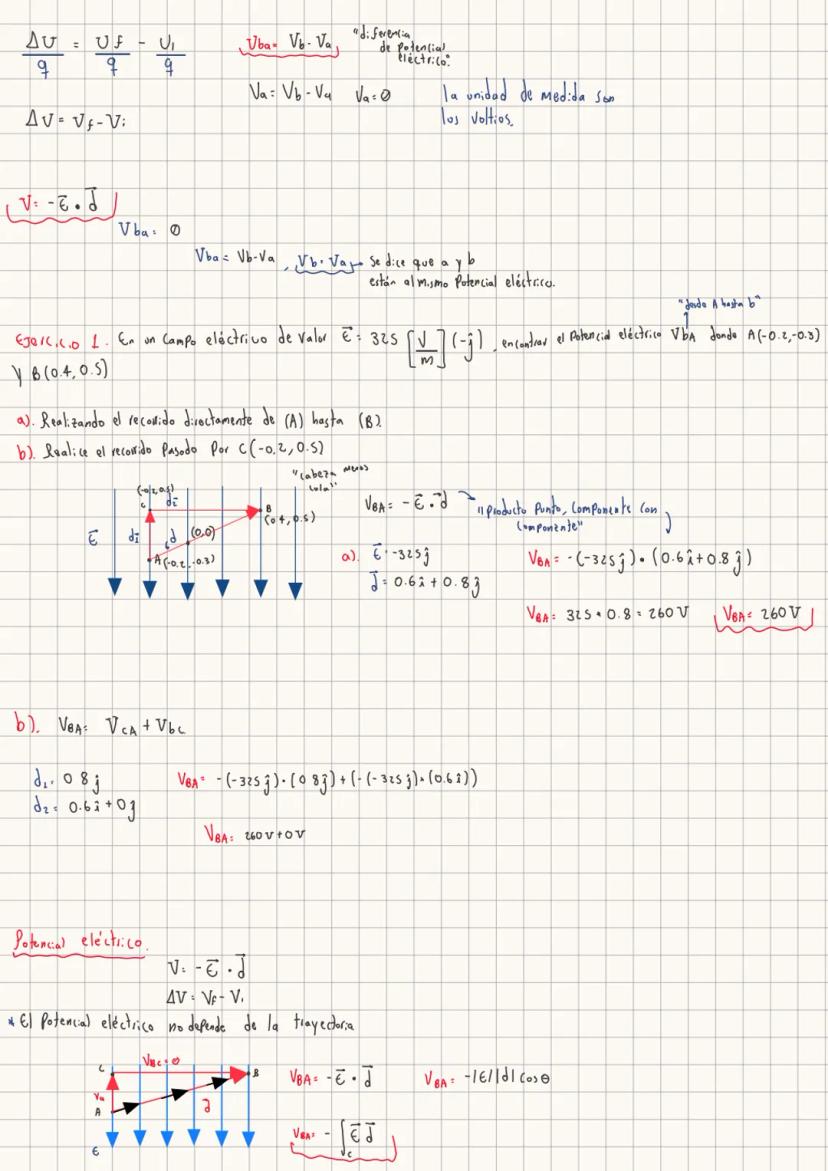 ΔU/q = Uf/q - Ui/q
Vba = Vb - Va "diferencia de Potencial eléctrico."
Va = Vb - Va Va = 0 la unidad de medida son los voltios.
ΔV = Vf - Vi
V = -E⃗ • d⃗
Vba = 0
Vba = Vb - Va, Vb = Va → Se dice que a y b
están al mismo Potencial eléctrico.
"desde A hasta b"
Ejercicio 1. En un Campo eléctrico de valor E⃗ = 325 [V/m] (-ĵ), encontrar el Potencial eléctrico VbA donde A(-0.2,-0.3)
y B(0.4, 0.5)
a). Realizando el recorrido directamente de (A) hasta (B).
b). Realice el recorrido Pasado Por C(-0.2, 0.5)
"cabeza menos cola"
(-0.2, 0.5)
C d⃗2 B
(0.4, 0.5)
E⃗ d⃗1 d⃗ (0,0)
A(-0.2,-0.3)
VBA = -E⃗ • d⃗ "Producto Punto, Componente con Componente"
a). E⃗ = -325ĵ
d⃗ = 0.6î + 0.8ĵ
VBA = -(-325ĵ) • (0.6î + 0.8ĵ)
VBA = 325 * 0.8 = 260 V VBA = 260 V
b). VBA = VCA + Vbc
d1 = 0.8ĵ VBA = -(-325ĵ) • (0.8ĵ) + (-(-325ĵ) • (0.6î))
d2 = 0.6î + 0ĵ
VBA = 260 V + 0 V
Potencial eléctrico.
V = -E⃗ • d⃗
ΔV = Vf - Vi
* El Potencial eléctrico no depende de la trayectoria
C VBC = 0 B
A d⃗
E
VBA = -E⃗ • d⃗ VBA = -|E||d| cos θ
VBA = -∫c E⃗ d⃗